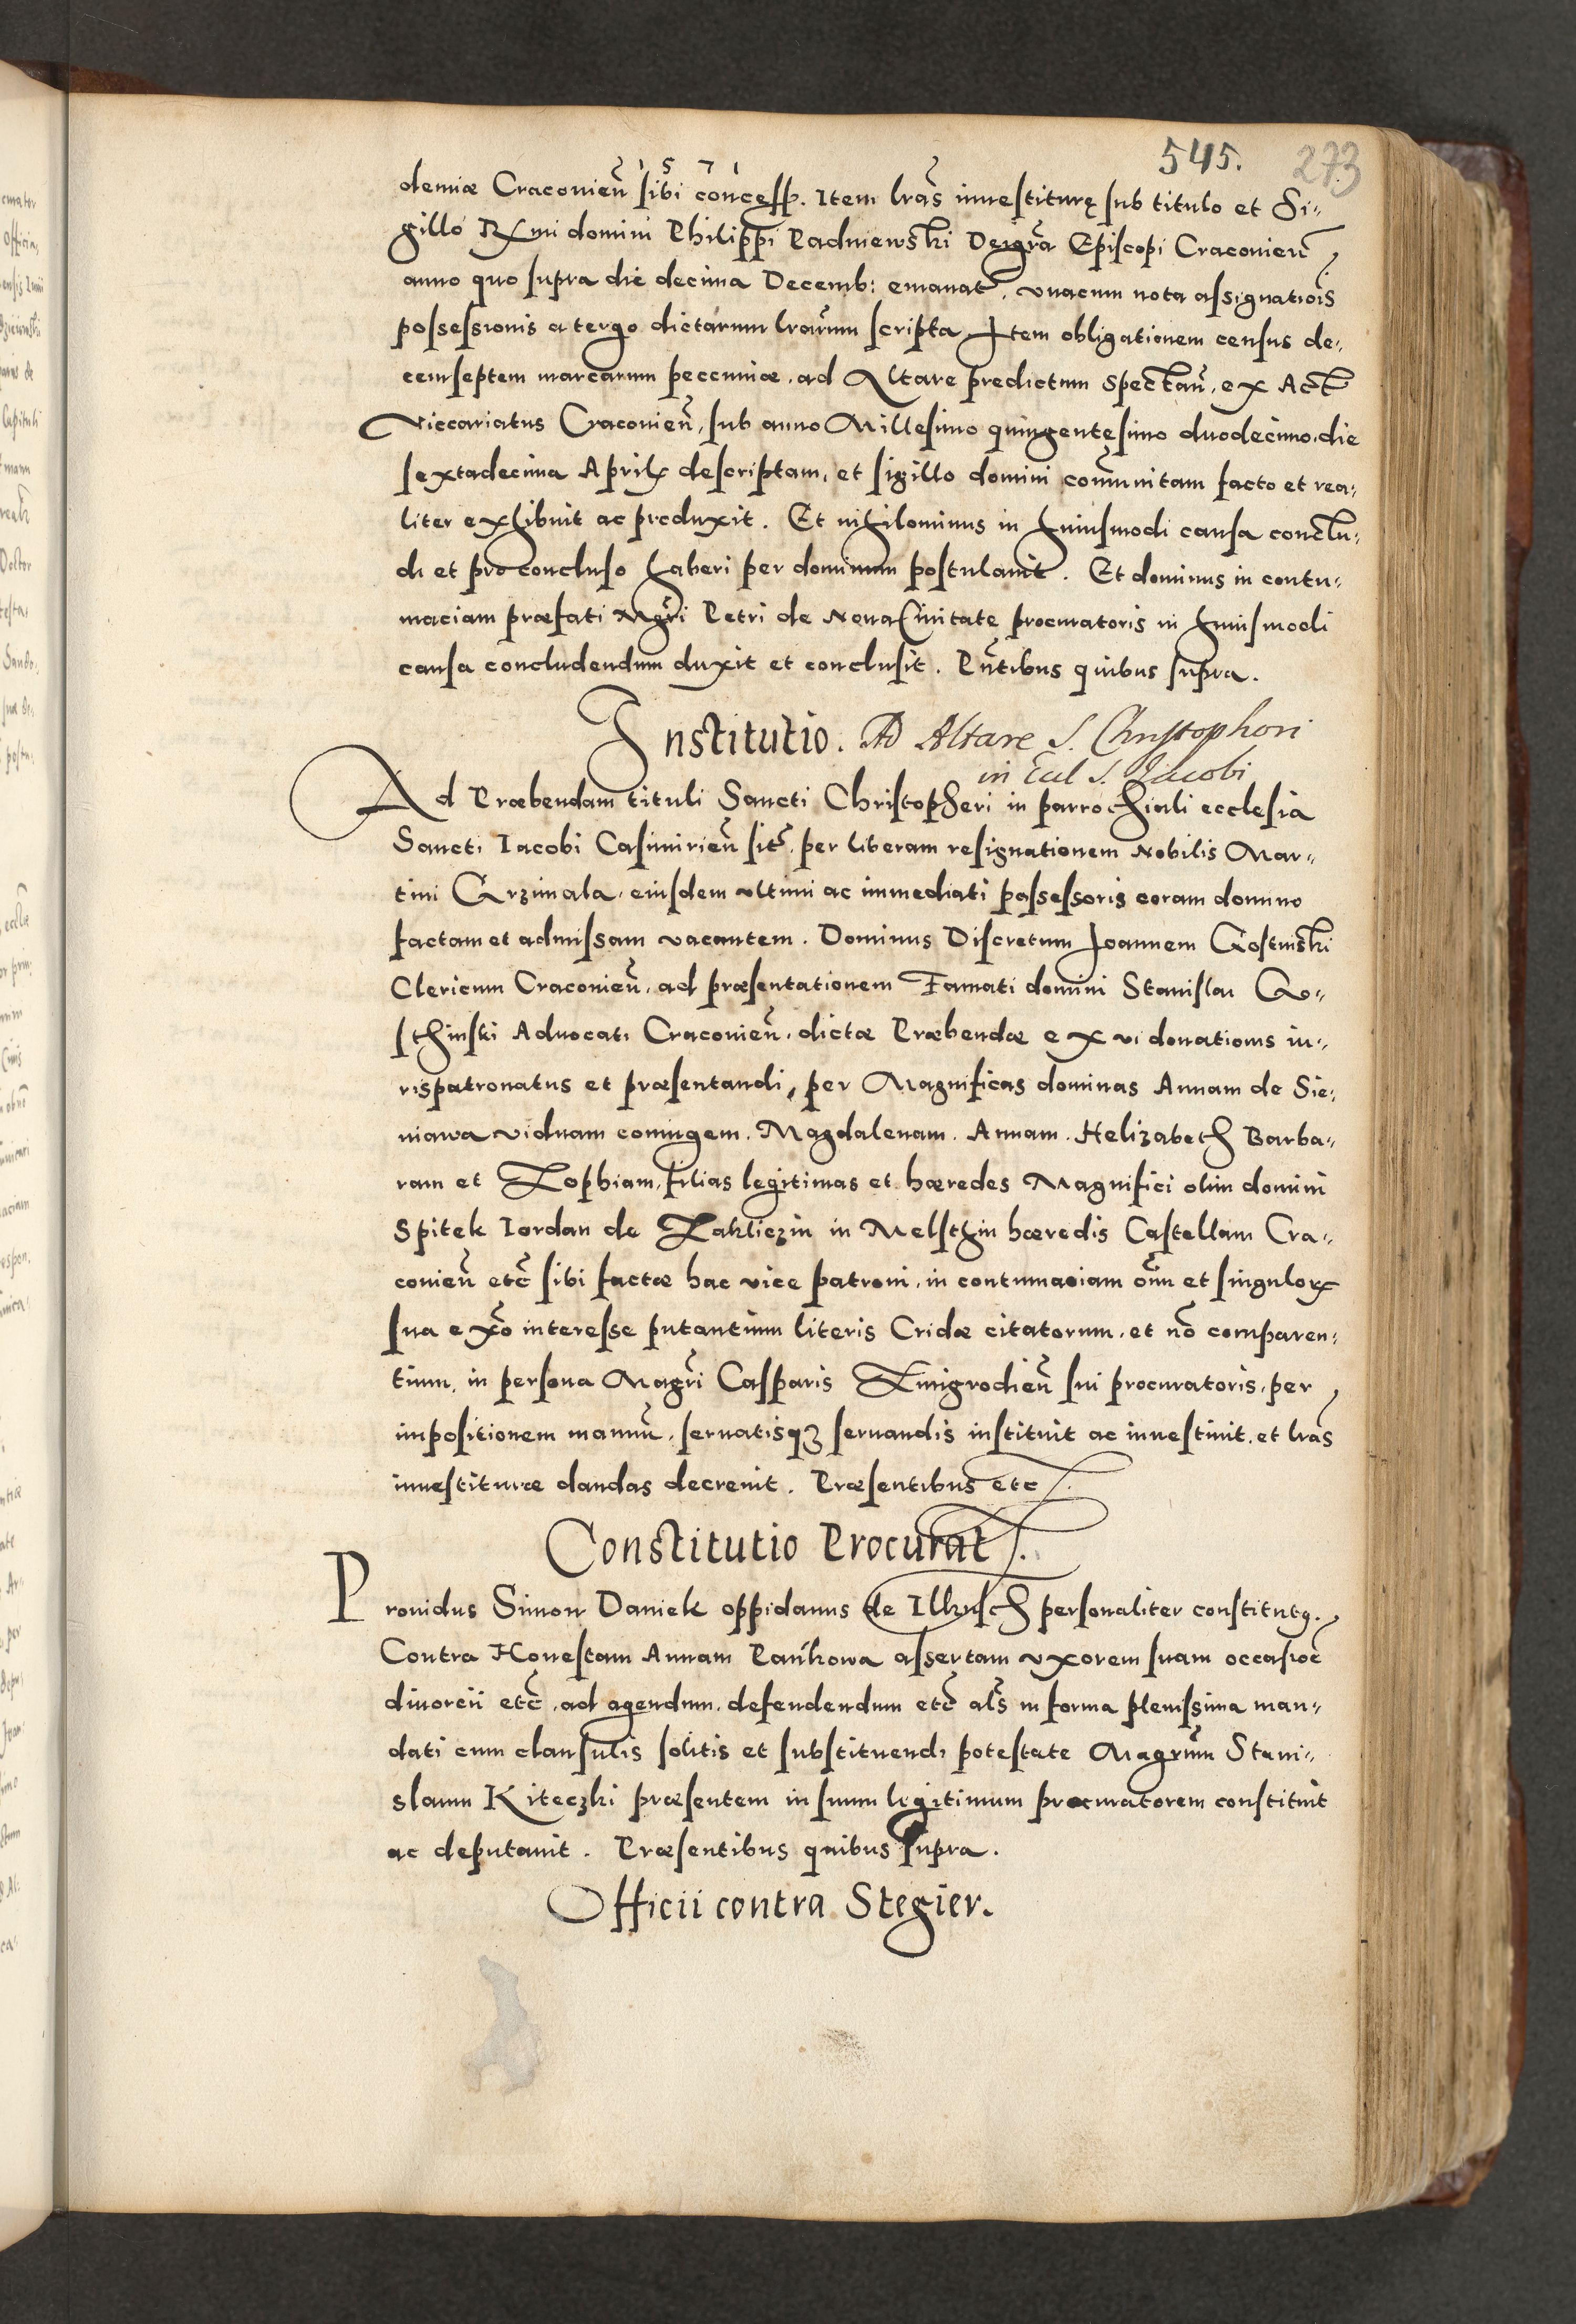 545. 273
1 5 7 1
demiæ Craconieñ sibi concess. Item lr̃as inuestiturę sub titulo et Si„
gillo Rx̃mi domini Philippi Padniewski Dei gr̃a Episcopi Craconień
anno quo supra die decima Decemb: emanat̃, vnacum nota assignatiõis
possessionis a tergo dictarum lr̃arum scripta. Item obligationem census de„
cemseptem marcarum peccuniæ, ad Altare predictum spectañ, ex Act̃
Viccariatus Craconieñ, sub anno Millesimo quingentesimo duodecimo, die
sextadecima Apriłx descriptam, et sigillo domini com̃unitam facto et rea„
liter exhibuit ac produxit. Et nihilominus in huiusmodi causa conclu„
di et pro concluso haberi per dominum postulauit. Et dominus in contu„
maciam præfati Mgr̃i Petri de Noua Ciuitate procuratoris in huiusmodi
causa concludendum duxit et conclusit. Pñtibus quibus supra.
Institutio. Ad Altare S. Chrystophori
in Eccl S. Jacobi
Ad Præbendam tituli Sancti Christopheri in parrochiali ecclesia
Sancti Iacobi Casimirieñ sit̃, per liberam resignationem Nobilis Mar„
tini Grzimala, eiusdem vltimi ac immediati possessoris coram domino
factam et admissam vacantem. Dominus Discretum Joannem Gostinski
Clericum Craconieñ, ad præsentationem Famati domini Stanislai Go„
sthinski Aduocati Craconieñ, dictæ Præbendæ ex vi donationis iu„
rispatronatus et præsentandi, per Magnificas dominas Annam de Sie„
niawa viduam coniugem. Magdalenam. Annam. Helizabeth Barba„
ram et Zophiam, filias legitimas et hæredes Magnifici olim domini
Spitek Iordan de Zakliczin in Melsthin hæredis Castellani Cra„
conieñ etc̃ sibi factæ hac vice patroni, in contumaciam om̃ et singulorx
sua ex̃o interesse putantium literis Cridæ citatorum, et nõ comparen„
tium, in persona Magr̃i Casparis Zmigrodieñ sui procuratoris, per
impositionem manuũ, seruatisqȝ seruandis instituit ac inuestiuit, et lr̃as
inuestituræ dandas decreuit. Præsentibus etc.
Constitutio Procurat.
Prouidus Simon Daniek oppidanus de Ilkusch personaliter constitutꝫ.
Contra Honestam Annam Pańkowa assertam vxorem suam occasiõe
diuorcii etc̃, ad agendum, defendendum etc̃ al̃s in forma plenissima man„
dati cum clausulis solitis et substituendi potestate Magr̃um Stani„
slaum Kiteczki præsentem in suum legitimum procuratorem constituit
ac deputauit. Præsentibus quibus supra.
Officii contra Stegier.